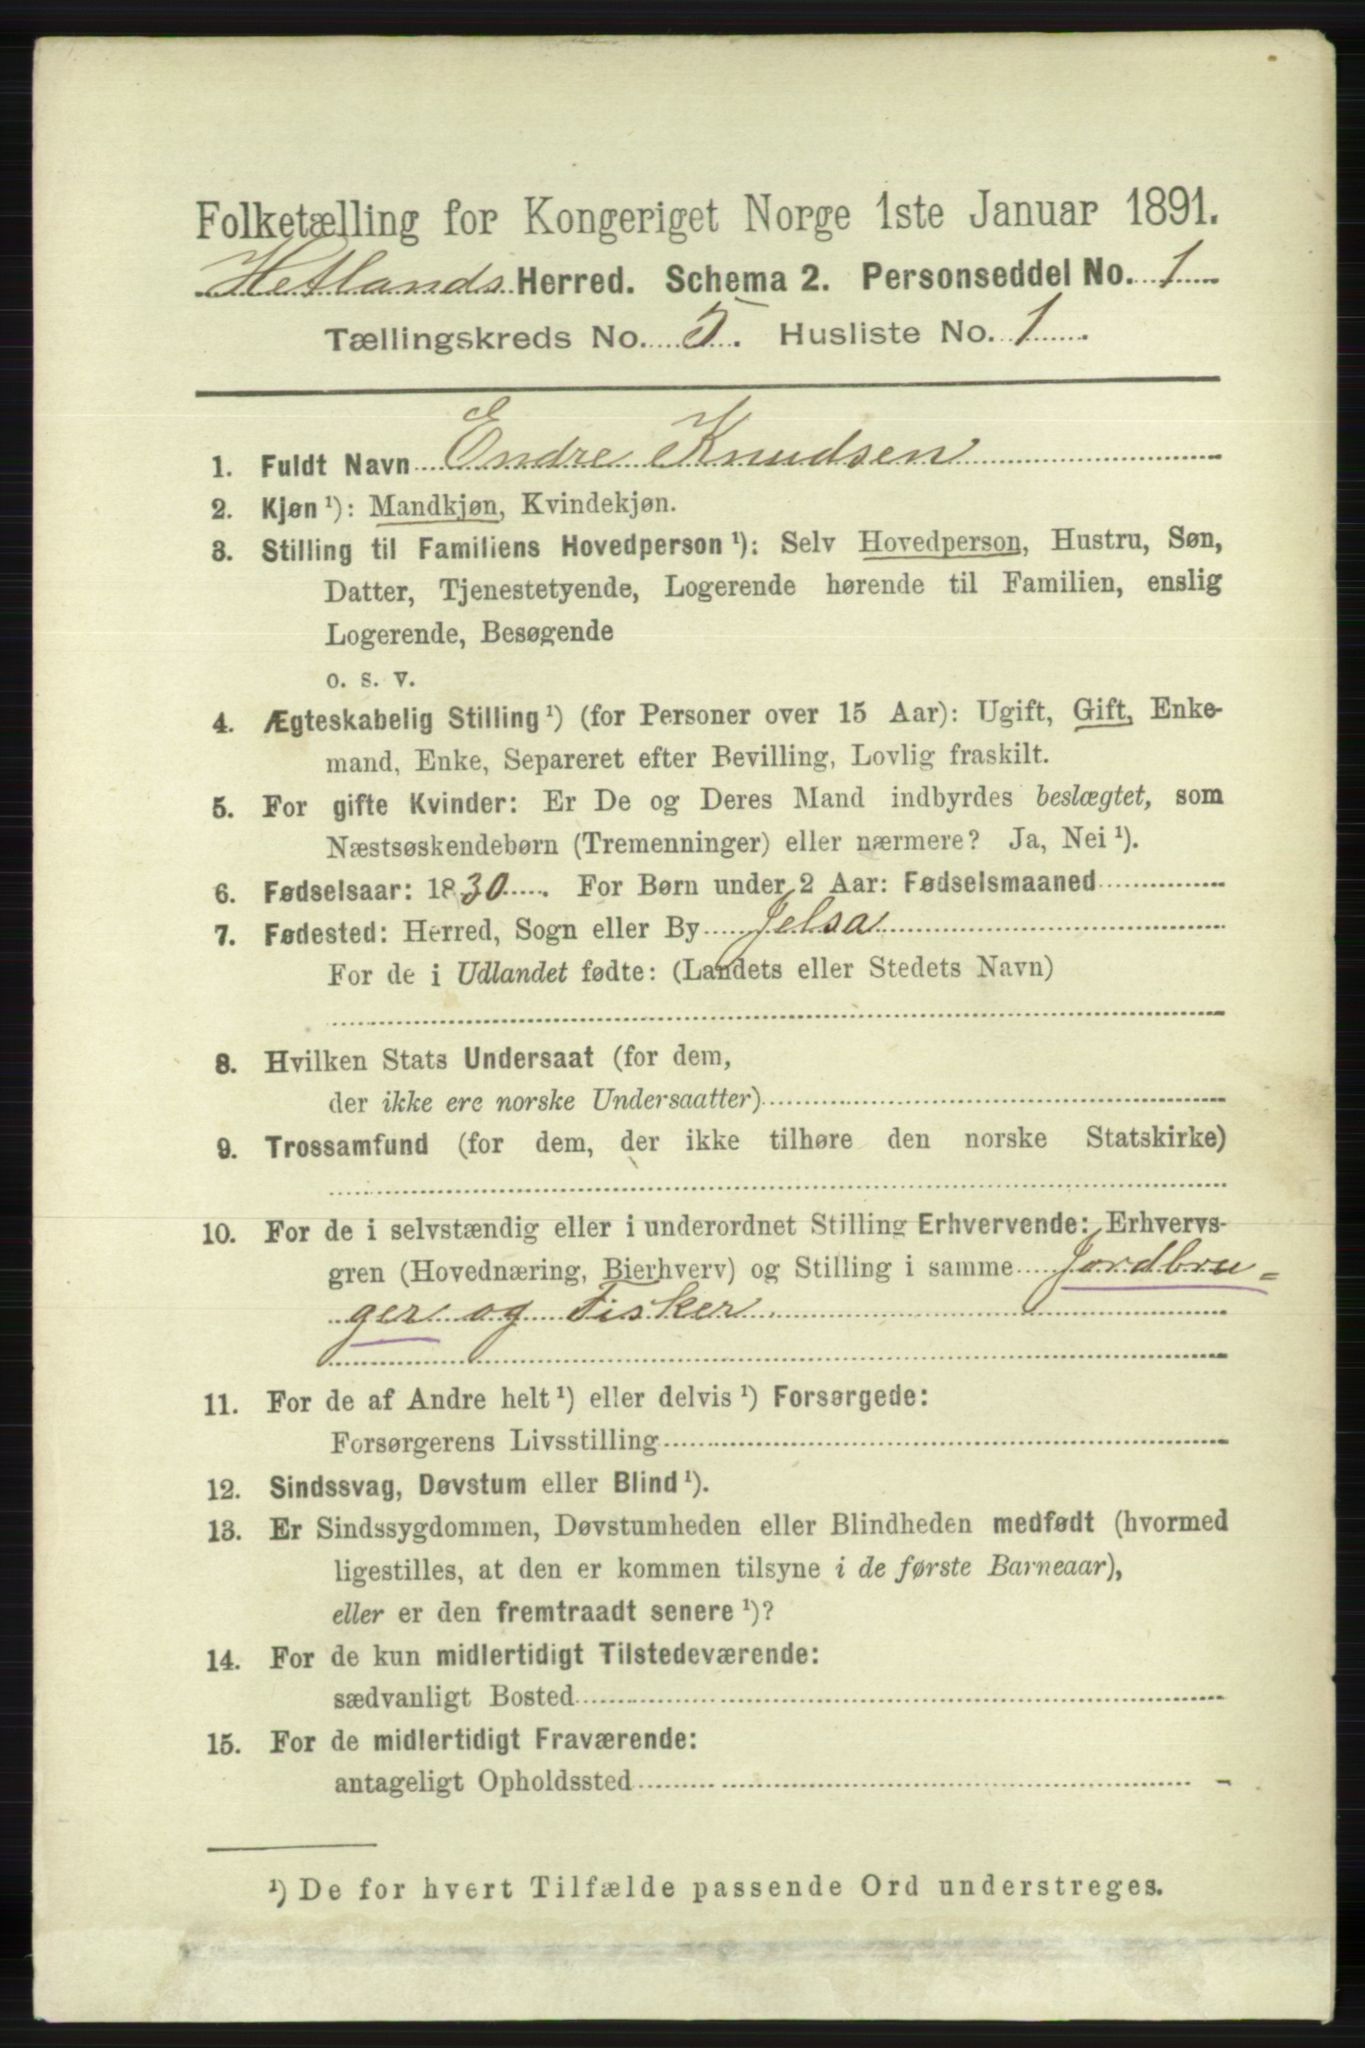 Folketælling for Kongeriget Norge 1ste Januar 1891.
Hetlands Herred. Schema 2. Personseddel No. 1
Tællingskreds No. 5. Husliste No. 1.
1. Fuldt Navn Endre Knudsen
2. Kjøn ¹): Mandkjøn, Kvindekjøn.
3. Stilling til Familiens Hovedperson ¹): Selv Hovedperson, Hustru, Søn,
Datter, Tjenestetyende, Logerende hørende til Familien, enslig
Logerende, Besøgende
o. s. v.
4. Ægteskabelig Stilling ¹) (for Personer over 15 Aar): Ugift, Gift, Enke-
mand, Enke, Separeret efter Bevilling, Lovlig fraskilt.
5. For gifte Kvinder: Er De og Deres Mand indbyrdes beslægtet, som
Næstsøskendebørn (Tremenninger) eller nærmere? Ja, Nei ¹).
6. Fødselsaar: 1830. For Børn under 2 Aar: Fødselsmaaned
7. Fødested: Herred, Sogn eller By Jelsa
For de i Udlandet fødte: (Landets eller Stedets Navn)
8. Hvilken Stats Undersaat (for dem,
der ikke ere norske Undersaatter)
9. Trossamfund (for dem, der ikke tilhøre den norske Statskirke)
10. For de i selvstændig eller i underordnet Stilling Erhvervende: Erhvervs-
gren (Hovednæring, Bierhverv) og Stilling i samme Jordbru=
ger og Fisker
11. For de af Andre helt ¹) eller delvis ¹) Forsørgede:
Forsørgerens Livsstilling
12. Sindssvag, Døvstum eller Blind ¹).
13. Er Sindssygdommen, Døvstumheden eller Blindheden medfødt (hvormed
ligestilles, at den er kommen tilsyne i de første Barneaar),
eller er den fremtraadt senere ¹)?
14. For de kun midlertidigt Tilstedeværende:
sædvanligt Bosted
15. For de midlertidigt Fraværende:
antageligt Opholdssted
¹) De for hvert Tilfælde passende Ord understreges.